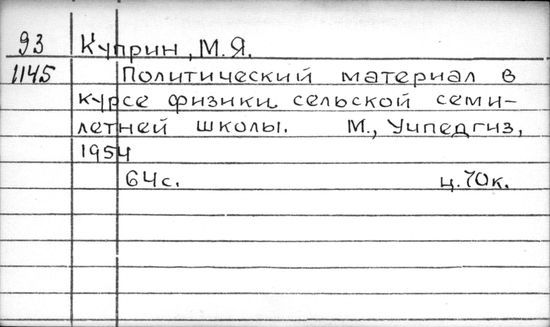 93 Куприн, М.Я.
1145 Политический материал в
курсе физики сельской семи-
летней школы. М., Учпедгиз,
1954
64с. ц.70к.